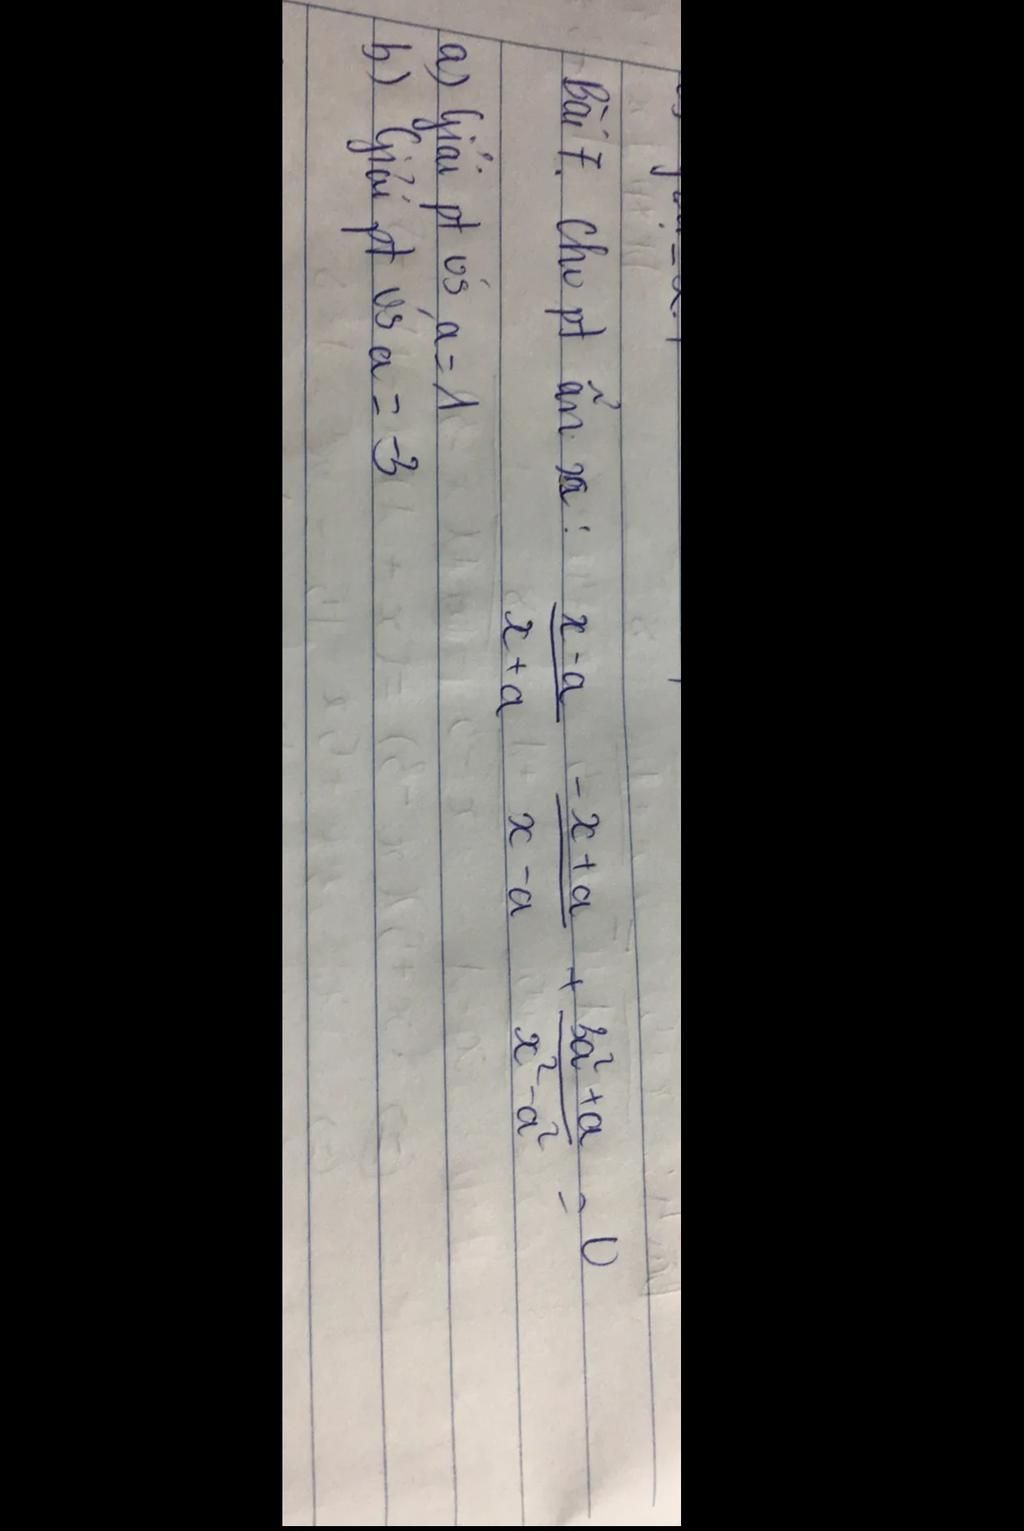 Bài 7. Cho pt ẩn x: x-a/x+a - x+a/x-a + 3a²+a/x²-a² = 0
a) Giải pt vs a=1
b) Giải pt vs a=-3